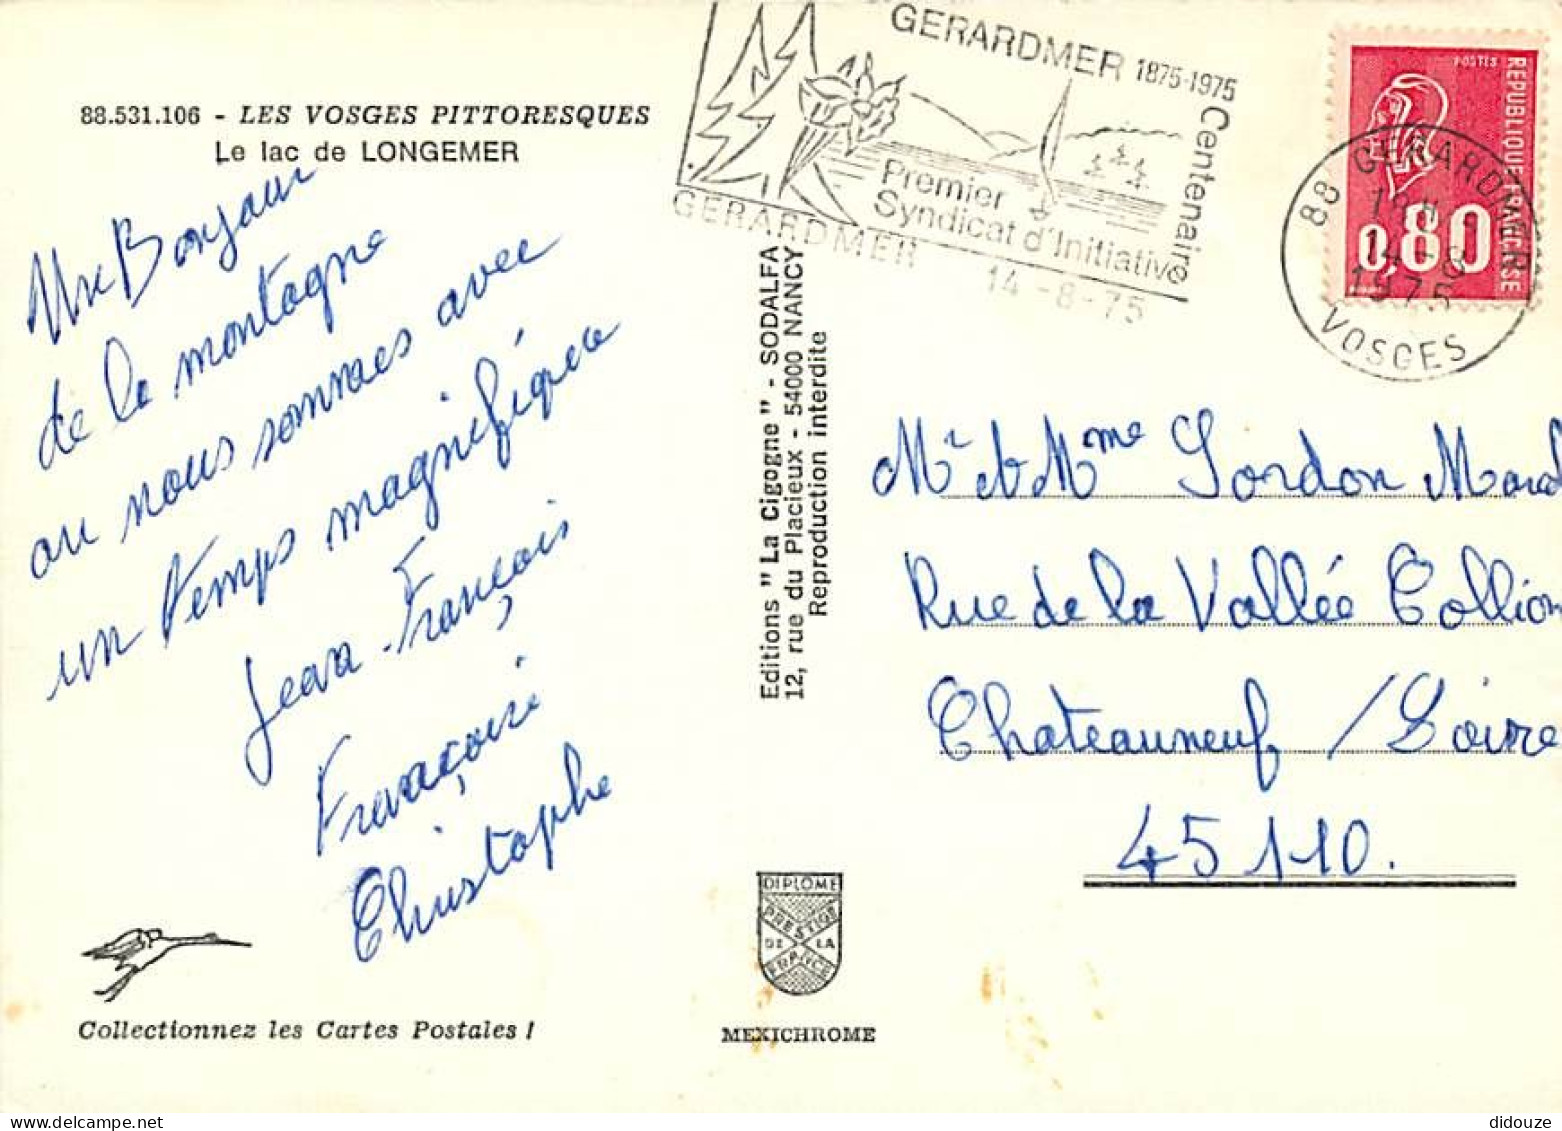 88.531.106 - LES VOSGES PITTORESQUES
Le lac de LONGEMER
Un Bonjour
de la montagne
ou nous sommes avec
un temps magnifique
Jean-François
Françoise
Christophe
Collectionnez les Cartes Postales !
Editions "La Cigogne" - SODALFA
12, rue du Placieux - 54000 NANCY
Reproduction interdite
DIPLOME
PRESTIGE
DE LA
FRANCE
MEXICHROME
GERARDMER 1875-1975
Centenaire
Premier
Syndicat d'Initiative
GERARDMER 14-8-75
POSTES
REPUBLIQUE FRANCAISE
0,80
88 GERARDMER
14-8
1975
VOSGES
Mr et Mme
Rue de la Vallée
Chateauneuf / Loire
45110.
didouze